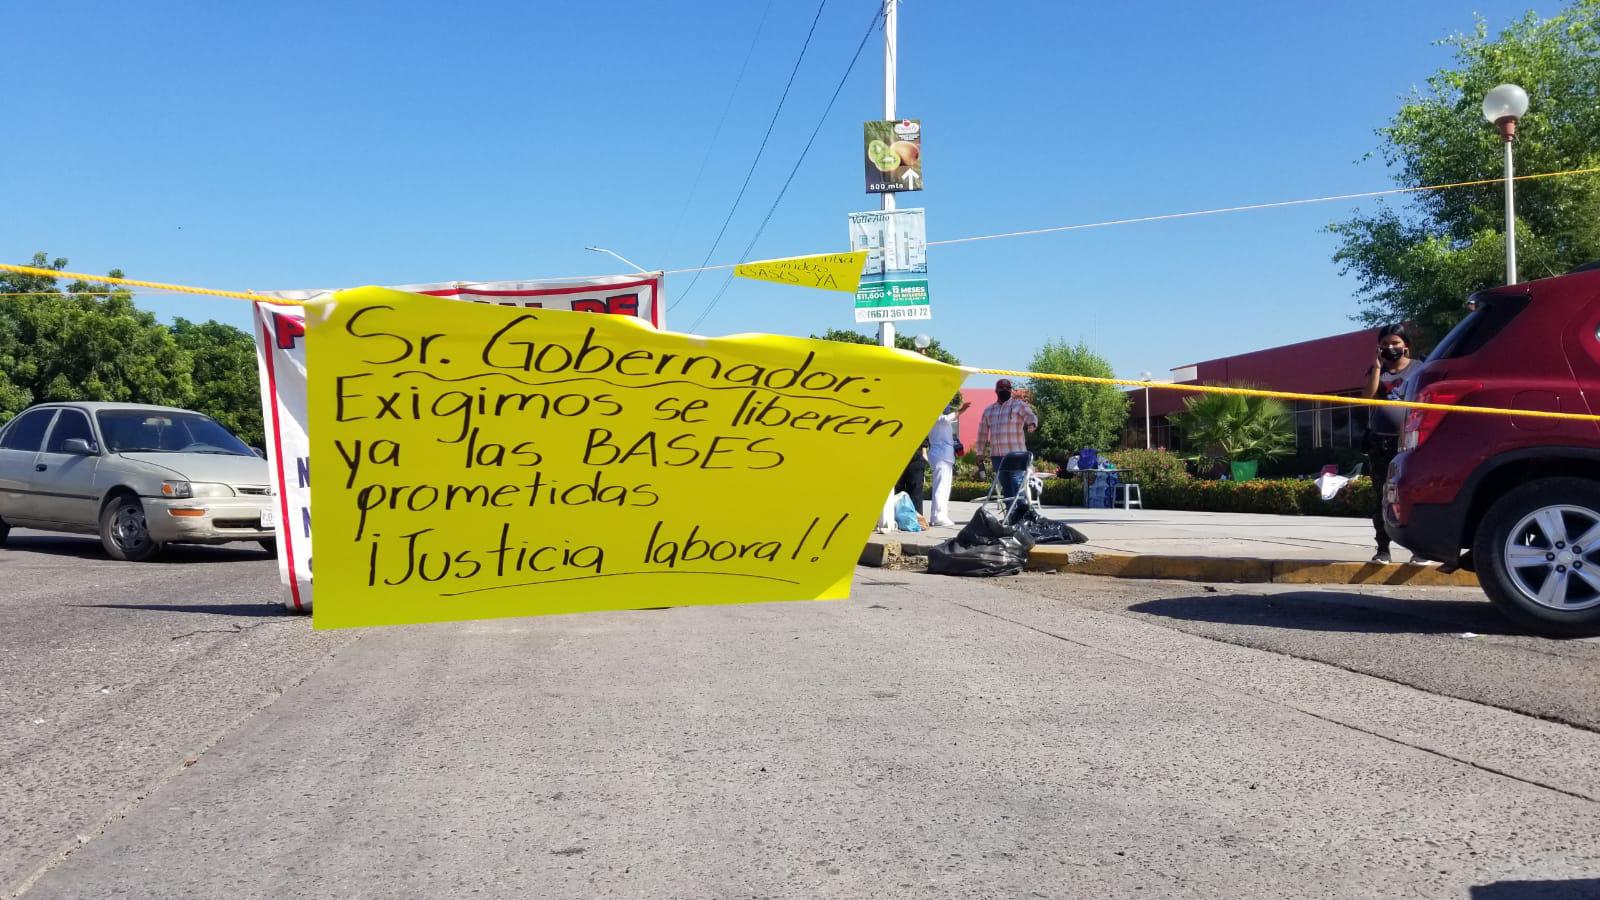 500 mts
Valle Alto
$11,600 + 12 MESES
SIN INTERESES
(667) 361 07 72
BASES YA
DE
Sr. Gobernador:
Exigimos se liberen
ya las BASES
prometidas
¡Justicia labora!!